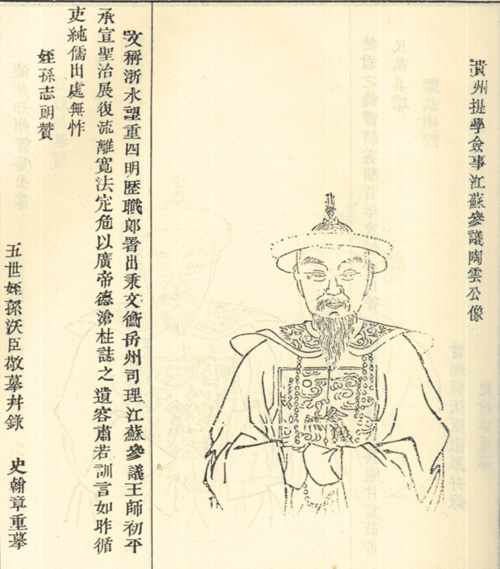 貴州提學僉事江蘇參議陶雲公像
文稱浙水望重四明歷職郎署出秉文衡岳州司理江蘇參議王師初平
承宣聖治展復流離寬法定危以廣帝德滄桂誌之遺容肅若訓言如昨循
吏純儒出處無怍
姪孫志朗贊
五世姪孫沃臣敬摹幷錄
史翰章重摹